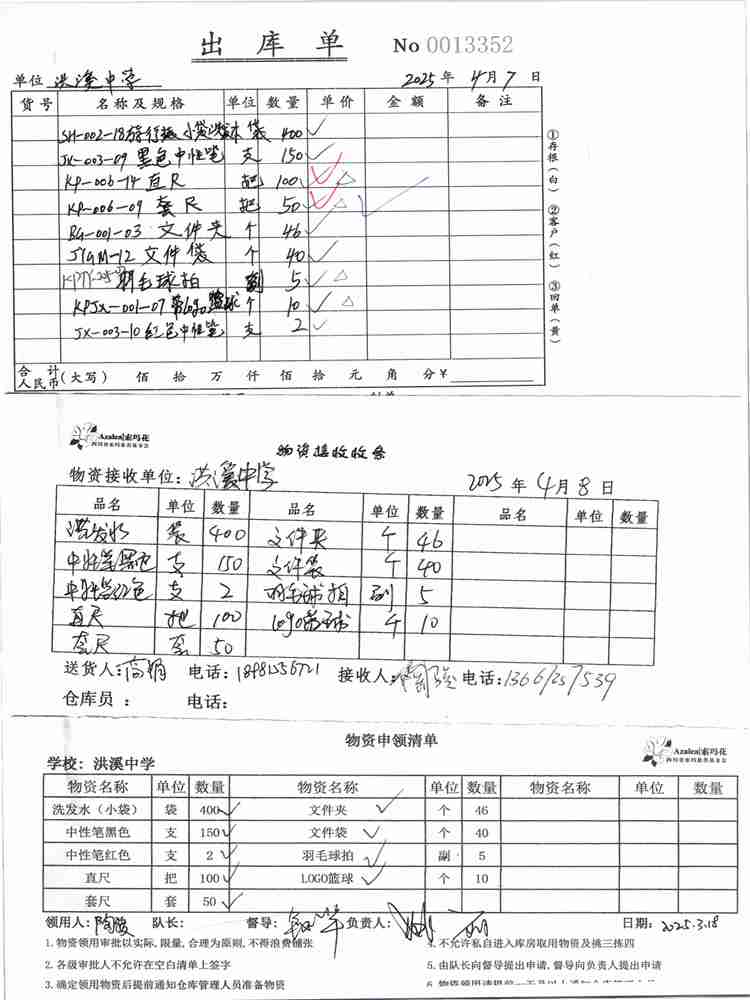 出库单 No 0013352
单位 洪溪中学 2025年4月7日
货号 名称及规格 单位 数量 单价 金额 备注
SH-002-18 袋 400
JX-003-09 黑色中性笔 支 150
KP-006-14 直尺 把 100
KP-006-09 套尺 把 50
BG-001-03 文件夹 个 46
JYGM-12 文件袋 个 40
羽毛球拍 副 5
KPJX-001-07 带logo篮球 个 10
JX-003-10 红色中性笔 支 2
合计人民币(大写) 佰 拾 万 仟 佰 拾 元 角 分¥
①存根(白) ②客户(红) ③回单(黄)
Azalea|索玛花
物资接收收条
物资接收单位: 洪溪中学 2025年4月8日
品名 单位 数量 品名 单位 数量 品名 单位 数量
洗发水 袋 400 文件夹 个 46
中性笔黑色 支 150 文件袋 个 40
中性笔红色 支 2 羽毛球拍 副 5
直尺 把 100 logo篮球 个 10
套尺 套 50
送货人: 电话: 接收人: 电话:
仓库员: 电话:
物资申领清单
Azalea|索玛花
学校: 洪溪中学
物资名称 单位 数量 物资名称 单位 数量 物资名称 单位 数量
洗发水(小袋) 袋 400 文件夹 个 46
中性笔黑色 支 150 文件袋 个 40
中性笔红色 支 2 羽毛球拍 副 5
直尺 把 100 LOGO篮球 个 10
套尺 套 50
领用人: 队长: 督导: 负责人: 日期: 2025.3.18
1.物资领用审批以实际,限量,合理为原则,不得浪费铺张 4.不允许私自进入库房取用物资及挑三拣四
2.各级审批人不允许在空白清单上签字 5.由队长向督导提出申请,督导向负责人提出申请
3.确定领用物资后提前通知仓库管理人员准备物资